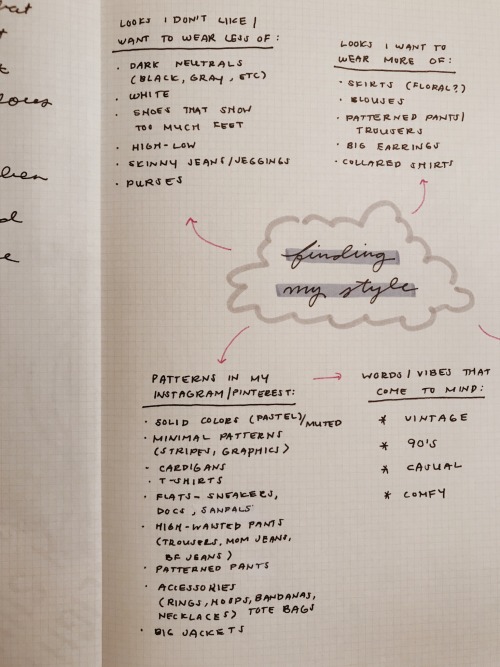 LOOKS I DON'T LIKE /
WANT TO WEAR LESS OF:
· DARK NEUTRALS
(BLACK, GRAY, ETC)
· WHITE
· SHOES THAT SHOW
TOO MUCH FEET
· HIGH-LOW
· SKINNY JEANS/JEGGINGS
· PURSES
LOOKS I WANT TO
WEAR MORE OF:
· SKIRTS (FLORAL?)
· BLOUSES
· PATTERNED PANTS/
TROUSERS
· BIG EARRINGS
· COLLARED SHIRTS
finding
my style
PATTERNS IN MY
INSTAGRAM/PINTEREST:
· SOLID COLORS (PASTEL)/MUTED
· MINIMAL PATTERNS
(STRIPES, GRAPHICS)
- CARDIGANS
· T-SHIRTS
· FLATS- SNEAKERS,
DOCS, SANDALS
· HIGH-WANTED PANTS
(TROUSERS, MOM JEANS,
BF JEANS)
· PATTERNED PANTS
· ACCESSORIES
(RINGS, HOOPS, BANDANAS,
NECKLACES) TOTE BAGS
· BIG JACKETS
WORDS / VIBES THAT
COME TO MIND:
* VINTAGE
* 90'S
* CASUAL
* COMFY